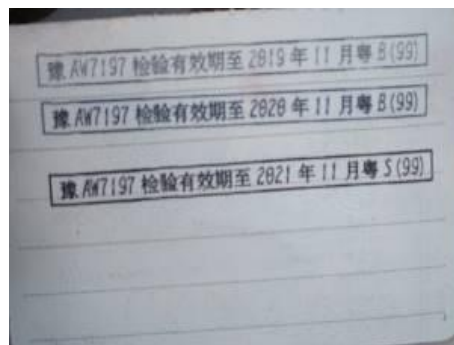 豫AW7197检验有效期至2019年11月粤B(99)
豫AW7197检验有效期至2020年11月粤B(99)
豫AW7197检验有效期至2021年11月粤S(99)